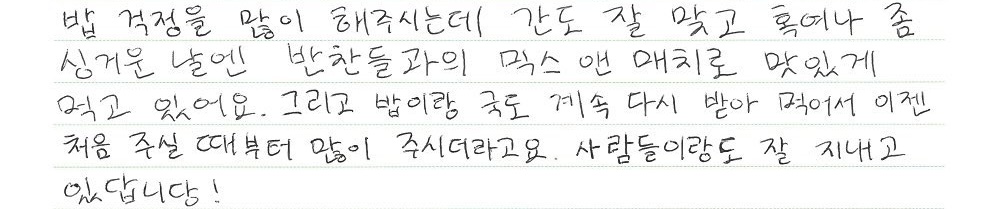 밥 걱정을 많이 해주시는데 간도 잘 맞고 혹여나 좀
싱거운 날엔 반찬들과의 믹스 앤 매치로 맛있게
먹고 있어요. 그리고 밥이랑 국도 계속 다시 받아 먹어서 이젠
처음 주실 때부터 많이 주시더라고요. 사람들이랑도 잘 지내고
있답니당!